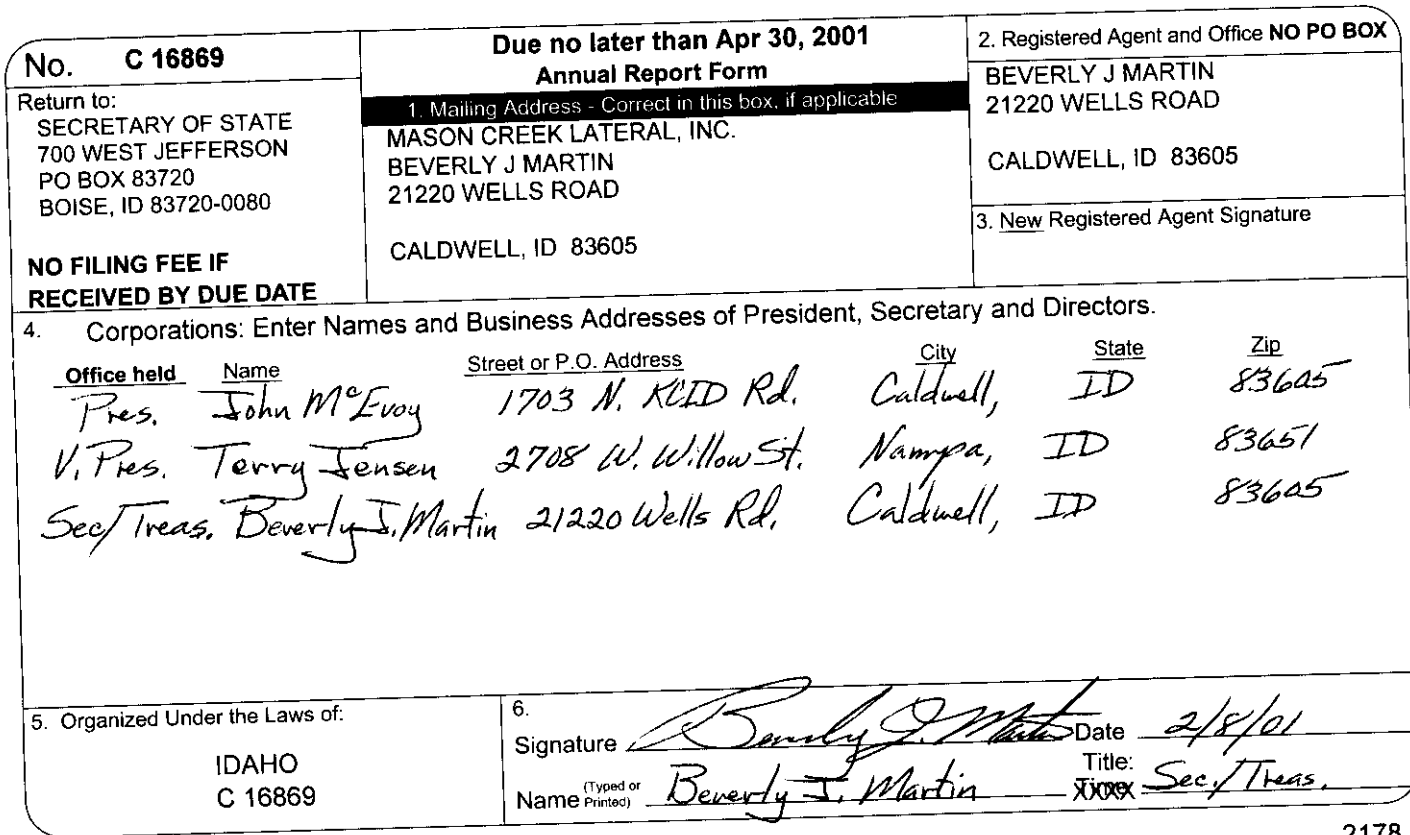 No. C 16869
Return to:
SECRETARY OF STATE
700 WEST JEFFERSON
PO BOX 83720
BOISE, ID 83720-0080
NO FILING FEE IF
RECEIVED BY DUE DATE
Due no later than Apr 30, 2001
Annual Report Form
1. Mailing Address - Correct in this box, if applicable
MASON CREEK LATERAL, INC.
BEVERLY J MARTIN
21220 WELLS ROAD
CALDWELL, ID 83605
2. Registered Agent and Office NO PO BOX
BEVERLY J MARTIN
21220 WELLS ROAD
CALDWELL, ID 83605
3. New Registered Agent Signature
4. Corporations: Enter Names and Business Addresses of President, Secretary and Directors.
Office held Name Street or P.O. Address City State Zip
Pres. John McEvoy 1703 N. KCID Rd. Caldwell, ID 83605
V. Pres. Terry Jensen 2708 W. Willow St. Nampa, ID 83651
Sec/Treas. Beverly J. Martin 21220 Wells Rd. Caldwell, ID 83605
5. Organized Under the Laws of:
IDAHO
C 16869
6.
Signature Beverly J. Martin Date 2/8/01
Name (Typed or Printed) Beverly J. Martin Title: Sec./Treas.
2178